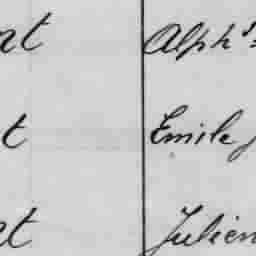 nt Alphse
t Emile
et Julien